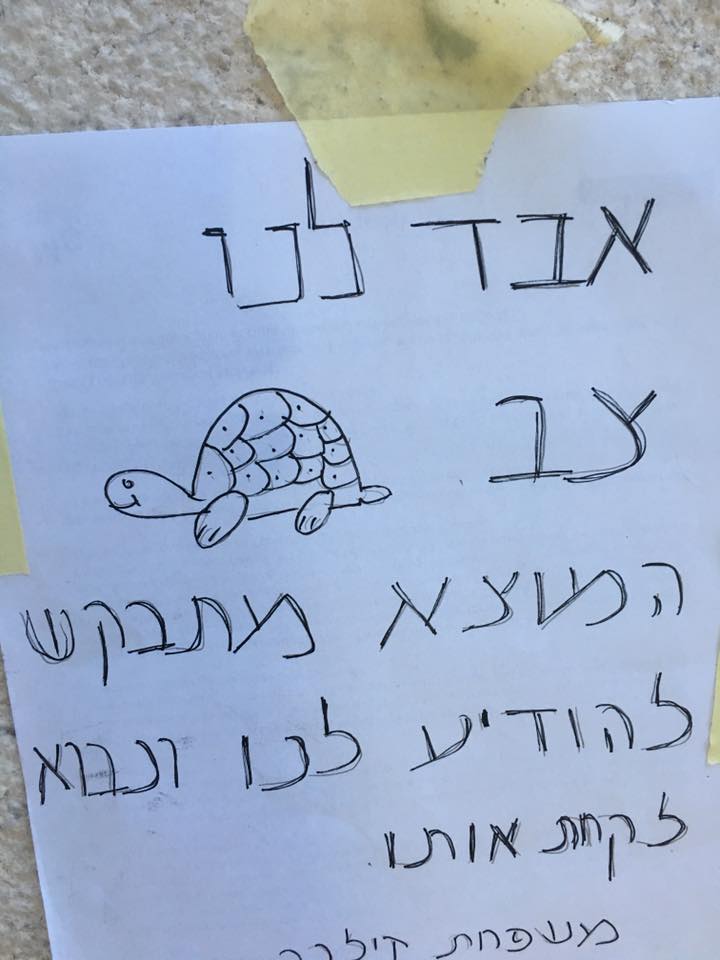 אבד לנו
צב
המוצא מתבקש
להודיע לנו ונבוא
לקחת אותו
משפחת